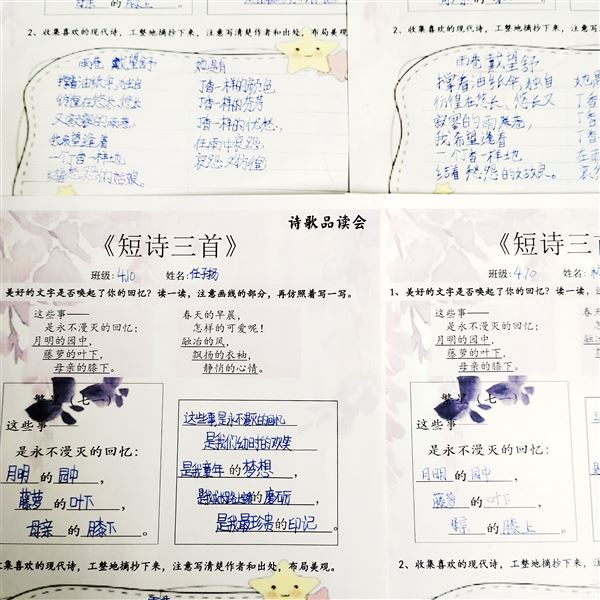 2、收集喜欢的现代诗，工整地摘抄下来，注意写清楚作者和出处，布局美观。
雨巷 戴望舒
撑着油纸伞，独自
彷徨在悠长、悠长
又寂寥的雨巷，
我希望逢着
一个丁香一样地
结着愁怨的姑娘。
她是有
丁香一样的颜色，
丁香一样的芬芳，
丁香一样的忧愁，
在雨中哀怨，
哀怨又彷徨
2、收集喜欢的现代诗，工整地摘抄下来，注意写清
雨巷 戴望舒
撑着油纸伞，独自
彷徨在悠长、悠长又
寂寥的雨巷，
我希望逢着
一个丁香一样地
结着愁怨的姑娘。
她是
丁香
丁香
丁香
在雨
哀怨
诗歌品读会
《短诗三首》
班级：4.10 姓名：任子扬
1、美好的文字是否唤起了你的回忆？读一读，注意画线的部分，再仿照着写一写。
这些事——
是永不漫灭的回忆：
月明的园中，
藤萝的叶下，
母亲的膝下。
春天的早晨，
怎样的可爱呢！
融冶的风，
飘扬的衣袖，
静悄的心情。
繁星（七一）
这些事
是永不漫灭的回忆：
月明的园中，
藤萝的叶下，
母亲的膝下。
这些事是永不漫灭的回忆
是我们幼时的欢笑
是我童年的梦想，
的磨历
是我最珍贵的印记。
2、收集喜欢的现代诗，工整地摘抄下来，注意写清楚作者和出处，布局美观。
《短诗三首
班级：4.10 姓名：
1、美好的文字是否唤起了你的回忆？读一读，注意
这些事——
是永不漫灭的回忆：
月明的园中，
藤萝的叶下，
母亲的膝下。
春
融
繁星（七一）
这些事
是永不漫灭的回忆：
月明的园中，
藤萝的叶下，
的膝上。
2、收集喜欢的现代诗，工整地摘抄下来，注意写清